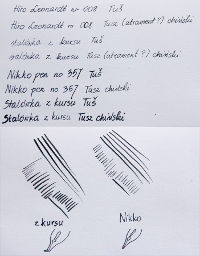 Hiro Leonardt nr 008 Tuš
Hiro Leonardt nr 008 Tusz (atrament?) chiński
stalówka z kursu Tuš
stalówka z kursu Tusz (atrament?) chiński
Nikko pen no 357 Tuš
Nikko pen no 367 Tusz chiński
Stalówka z kursu Tuš
Stalówka z kursu Tusz chiński
z kursu Nikko